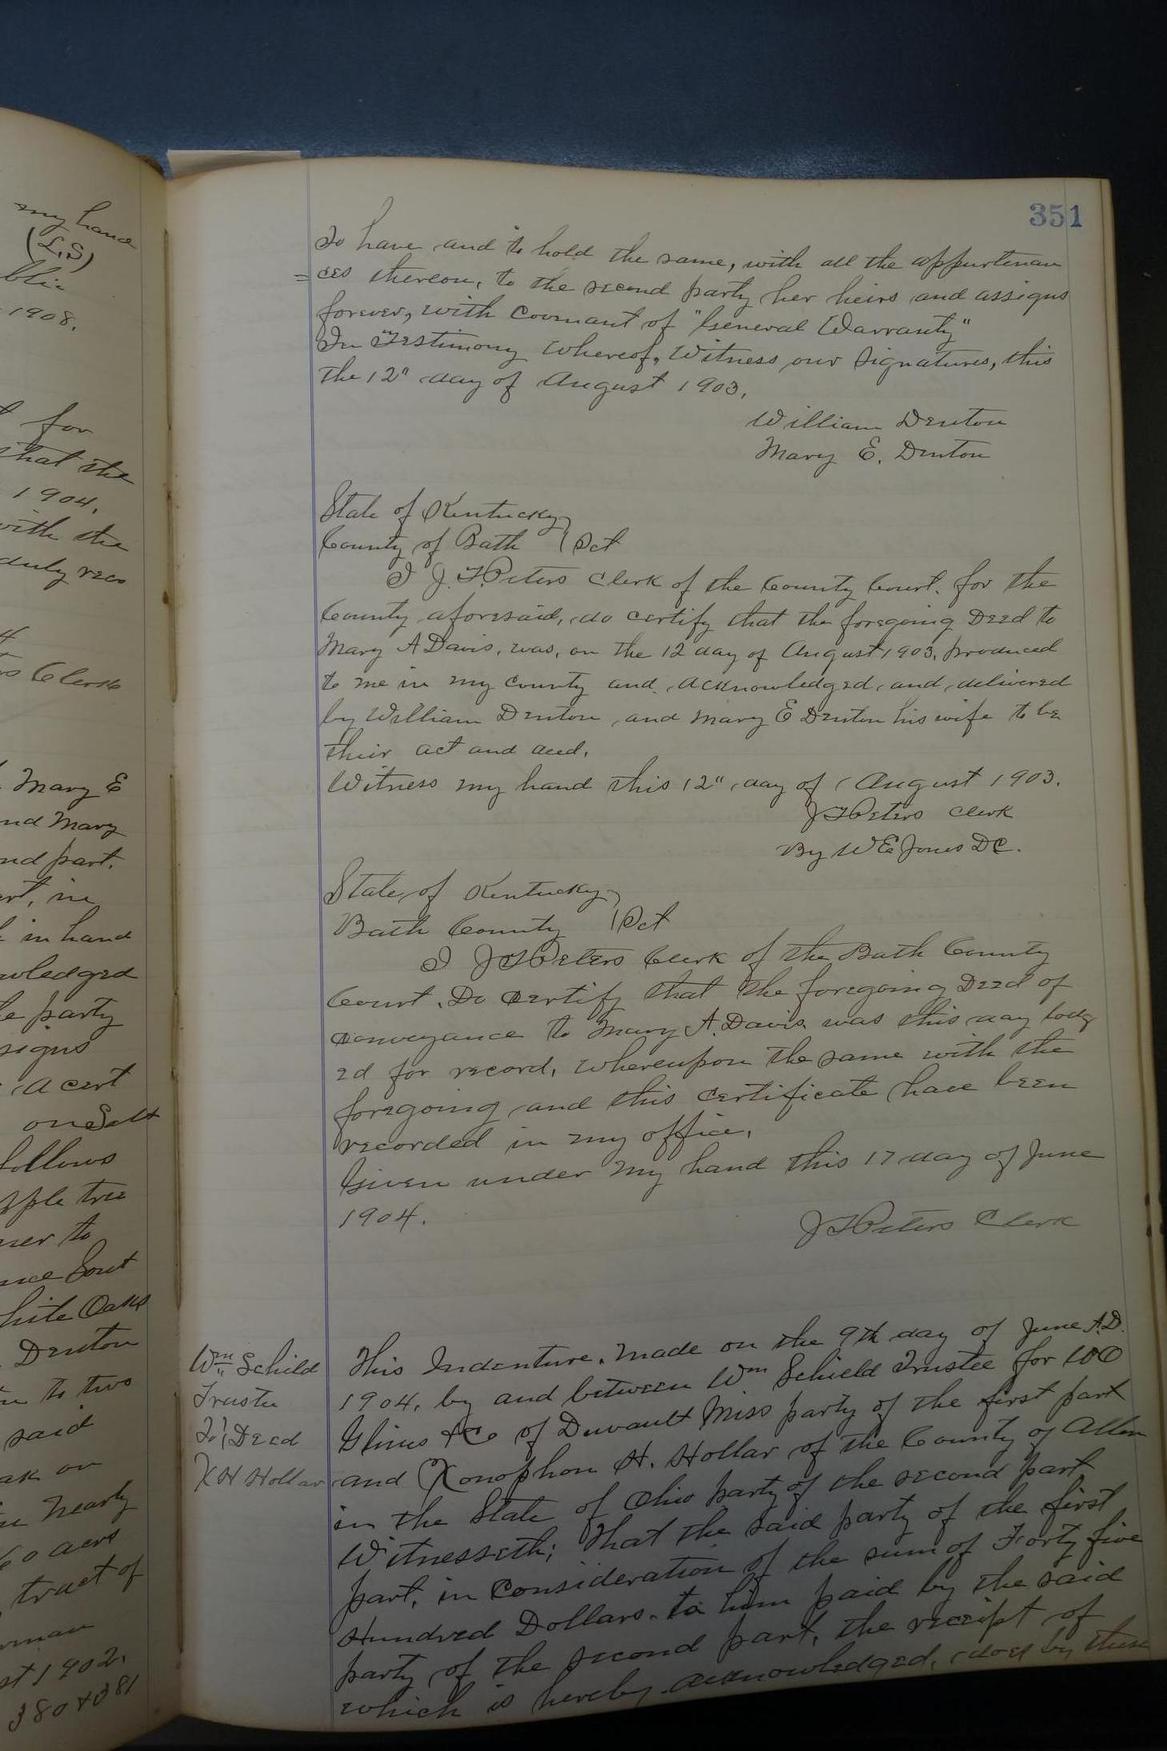 my hand
(L.S)
1908.
for
that the
1904.
with the
duly reco
4
Clerk
Mary E
and Mary
nd part.
in
in hand
wledged
party
signs
a cert
one Salt
follows
pple tree
ner to
nce Sout
hite Oaks
Denton
to two
said
oak on
nearly
60 acrs
tract of
st 1902.
380 & 381
351
To have and to hold the same, with all the appurtenan
=ces thereon, to the second party her heirs and assigns
forever, with Covenant of "General Warranty"
In Testimony Whereof, Witness our Signatures, this
the 12" day of August 1903.
William Denton
Mary E. Denton
State of Kentucky
County of Bath } Sct
I J. T. Peters Clerk of the County Court. for the
County aforesaid, do certify that the foregoing Deed to
Mary A Davis, was, on the 12 day of August 1903, produced
to me in my County and acknowledged, and delivered
by William Denton, and Mary E Denton his wife to be
their act and deed.
Witness my hand this 12" day of August 1903.
J T Peters Clerk
By W E Jones D C.
State of Kentucky
Bath County } Sct
I J T Peters Clerk of the Bath County
Court. Do Certify that the foregoing Deed of
Conveyance to Mary A. Davis was this day lodg
ed for record, whereupon the same with the
foregoing and this Certificate have been
recorded in my office.
Given under my hand this 17 day of June
1904.
J T Peters Clerk
Wm Schild
Trustee
To } Deed
X H Hollar
This Indenture. Made on the 9th day of June A.D.
1904. by and between Wm Schield Trustee for
& Co of Miss party of the first part
and Xonophon H. Hollar of the County of Allen
in the State of Ohio party of the second part
Witnesseth; That the said party of the first
part, in Consideration of the sum of Forty five
Hundred Dollars. to him paid by the said
party of the second part, the receipt of
which is hereby acknowledged, does by these